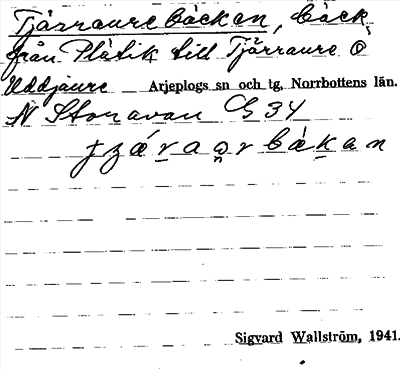 Tjårraurebäcken, bäck
från Plåtik till Tjårraure Ö
Uddjaure Arjeplogs sn och tg, Norrbottens län.
N Storavan C; 34
Sigvard Wallström, 1941.